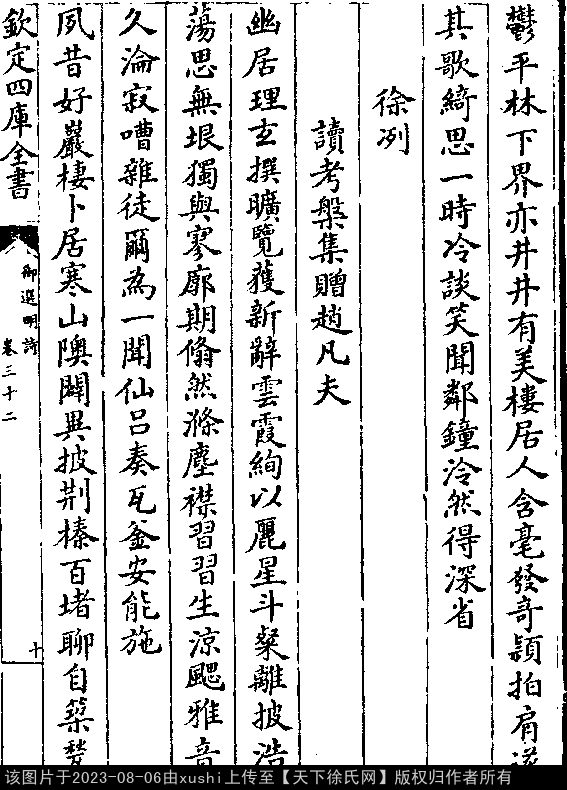 鬱平林下界亦井井有美樓居人含毫發奇穎拍肩
其歌綺思一時冷談笑聞鄰鐘泠然得深省
徐冽
讀考槃集贈趙凡夫
幽居理玄撰曠覽獲新辭雲霞絢以麗星斗粲離披浩
蕩思無垠獨與寥廓期翛然滌塵襟習習生涼颸雅音
久淪寂嘈雜徒爾為一聞仙呂奏瓦釜安能施
夙昔好巖棲卜居寒山隩闢異披荆榛百堵聊自築
欽定四庫全書
御選明詩
卷三十二
十
该图片于2023-08-06由xushi上传至【天下徐氏网】版权归作者所有